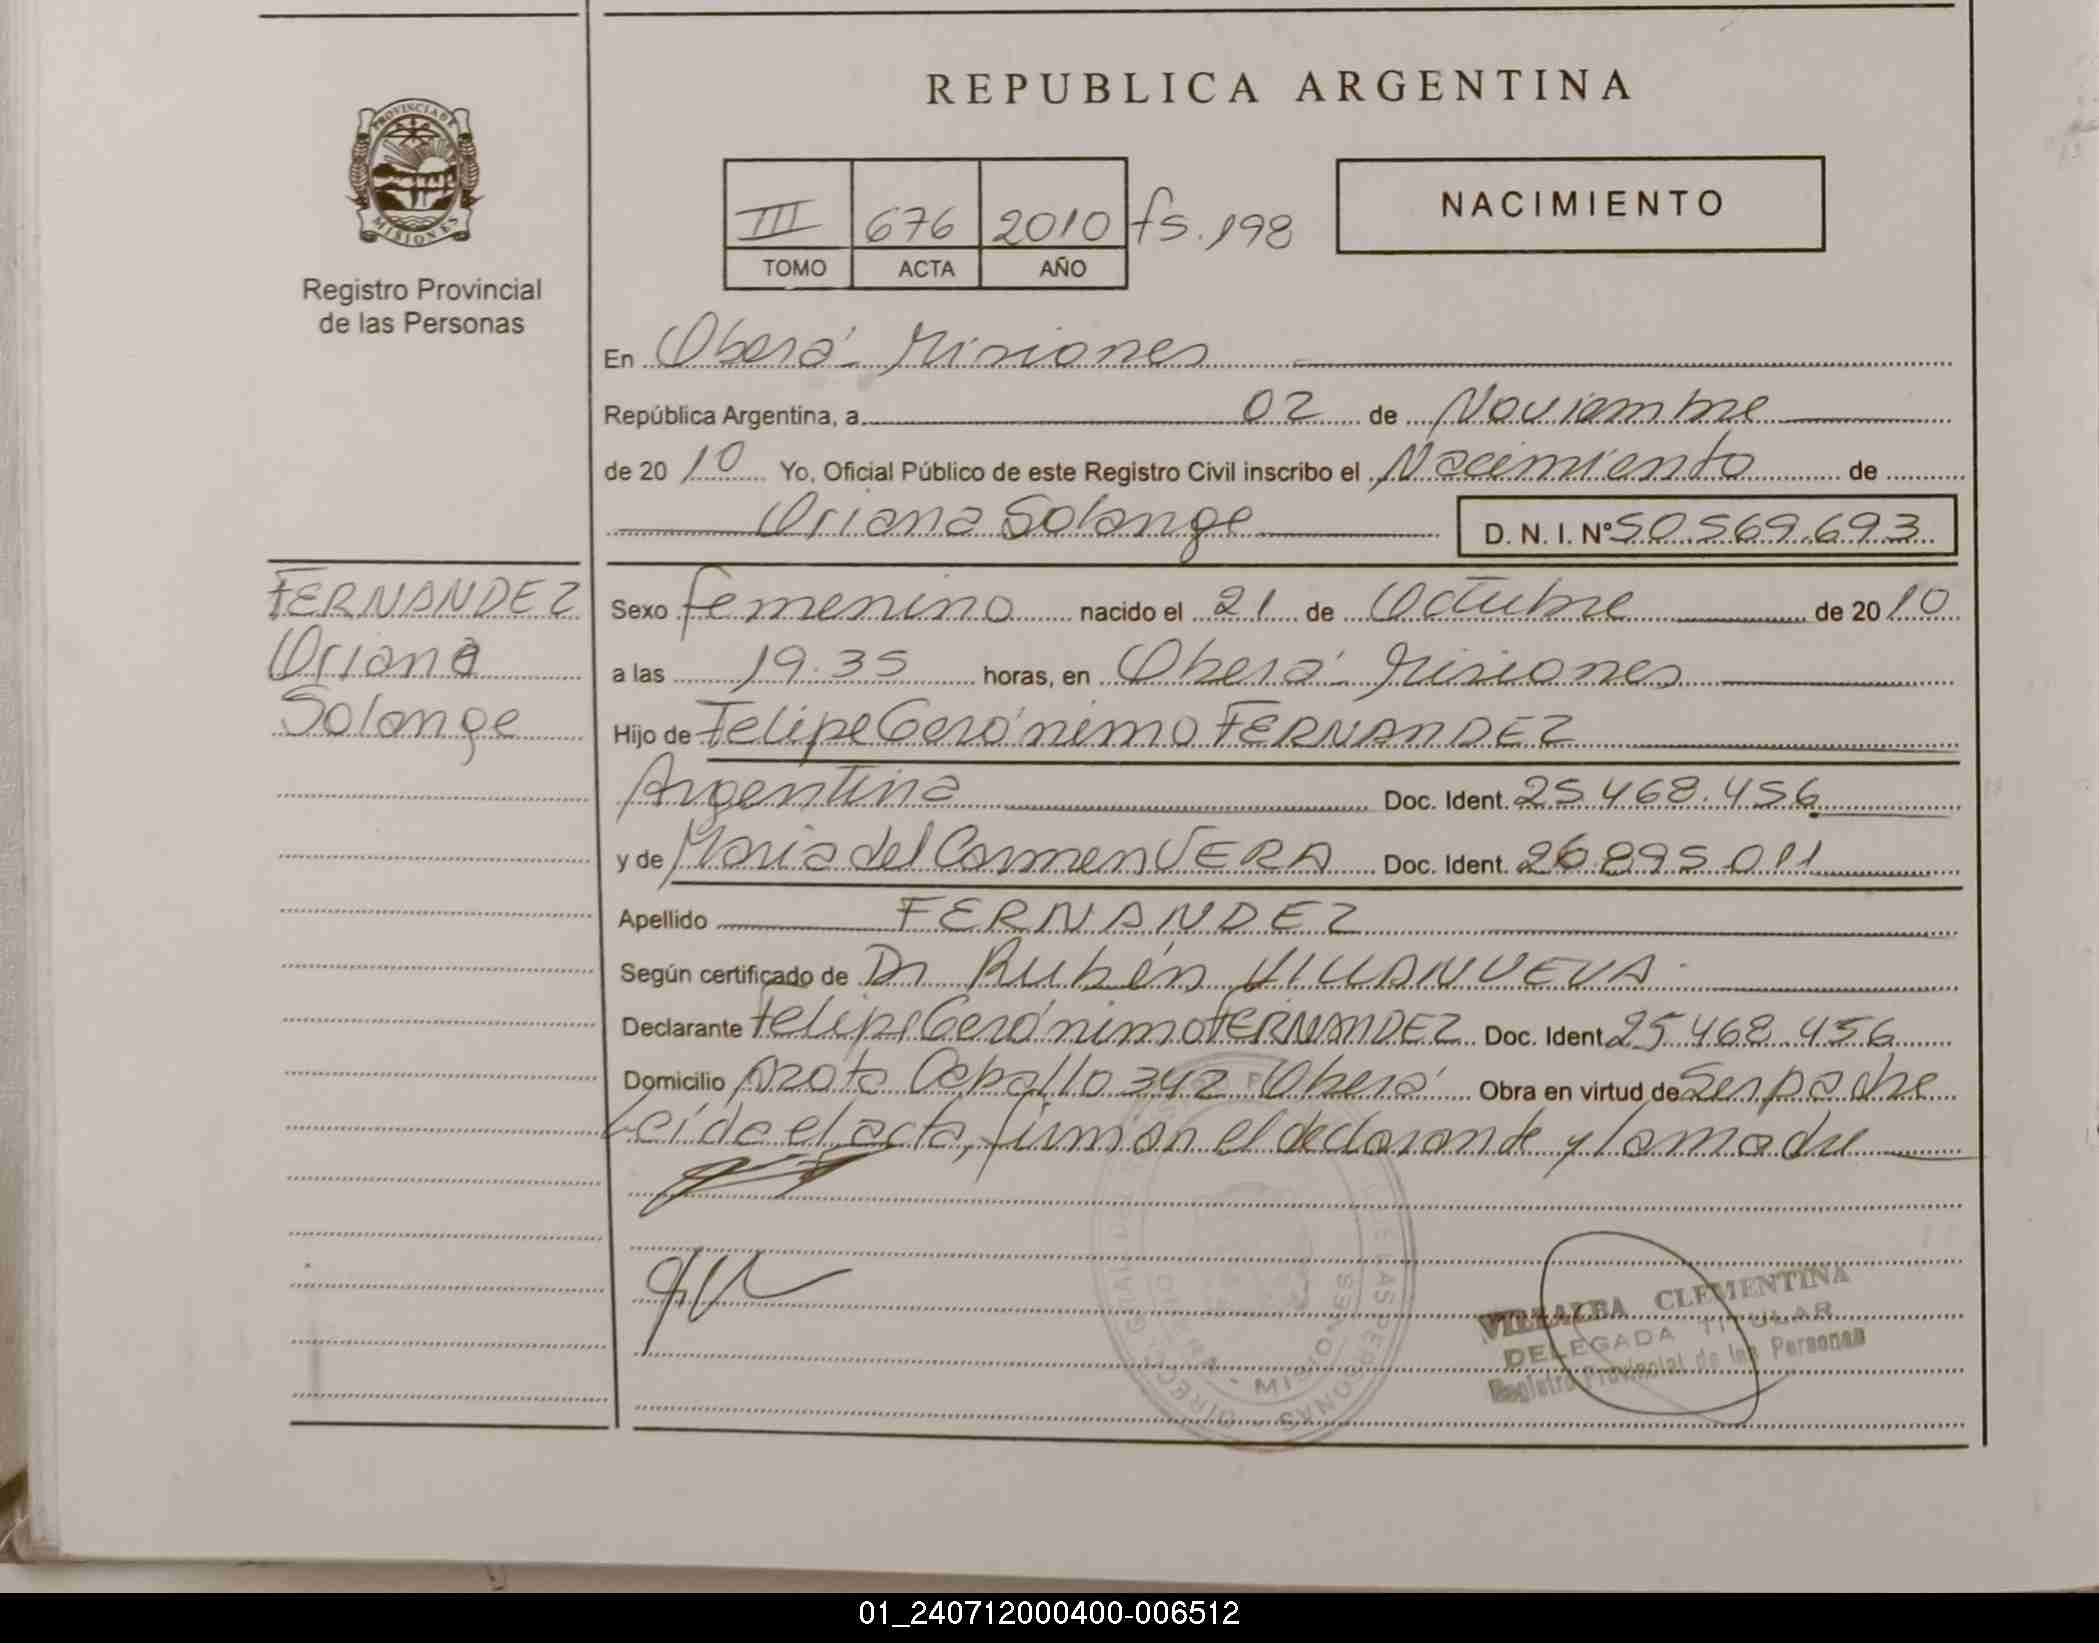 PROVINCIA DE
MISIONES
Registro Provincial
de las Personas
REPUBLICA ARGENTINA
III 676 2010 fs. 198
TOMO ACTA AÑO
NACIMIENTO
En Oberá - Misiones
República Argentina, a 02 de Noviembre
de 2010 Yo, Oficial Público de este Registro Civil inscribo el Nacimiento de
Oriana Solange D. N. I. Nº 50.569.693
FERNANDEZ
Oriana
Solange
Sexo femenino nacido el 21 de Octubre de 2010
a las 19.35 horas, en Oberá - Misiones
Hijo de Felipe Gerónimo FERNANDEZ
Argentina Doc. Ident. 25.468.456
y de Maria del Carmen VERA Doc. Ident. 26.895.011
Apellido FERNANDEZ
Según certificado de Dr Rubén VILLANUEVA.
Declarante Felipe Gerónimo FERNANDEZ Doc. Ident 25.468.456
Domicilio Caballo 342 Oberá Obra en virtud de Ser padre
Leída el acta, firman el declarante y la madre
VILLALBA CLEMENTINA
DELEGADA TITULAR
Registro Provincial de las Personas
01_240712000400-006512